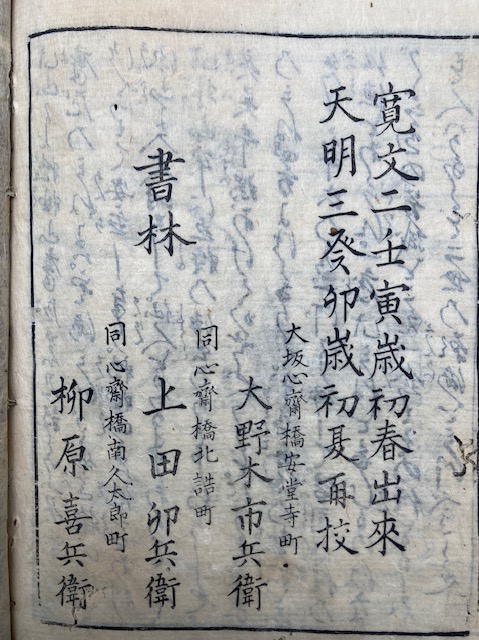 寛文二壬寅歳初春出來
天明三癸卯歳初夏再挍
大坂心齋橋安堂寺町
大野木市兵衛
書林
同心齋橋北詰町
上田卯兵衛
同心齋橋南久太郎町
柳原喜兵衛